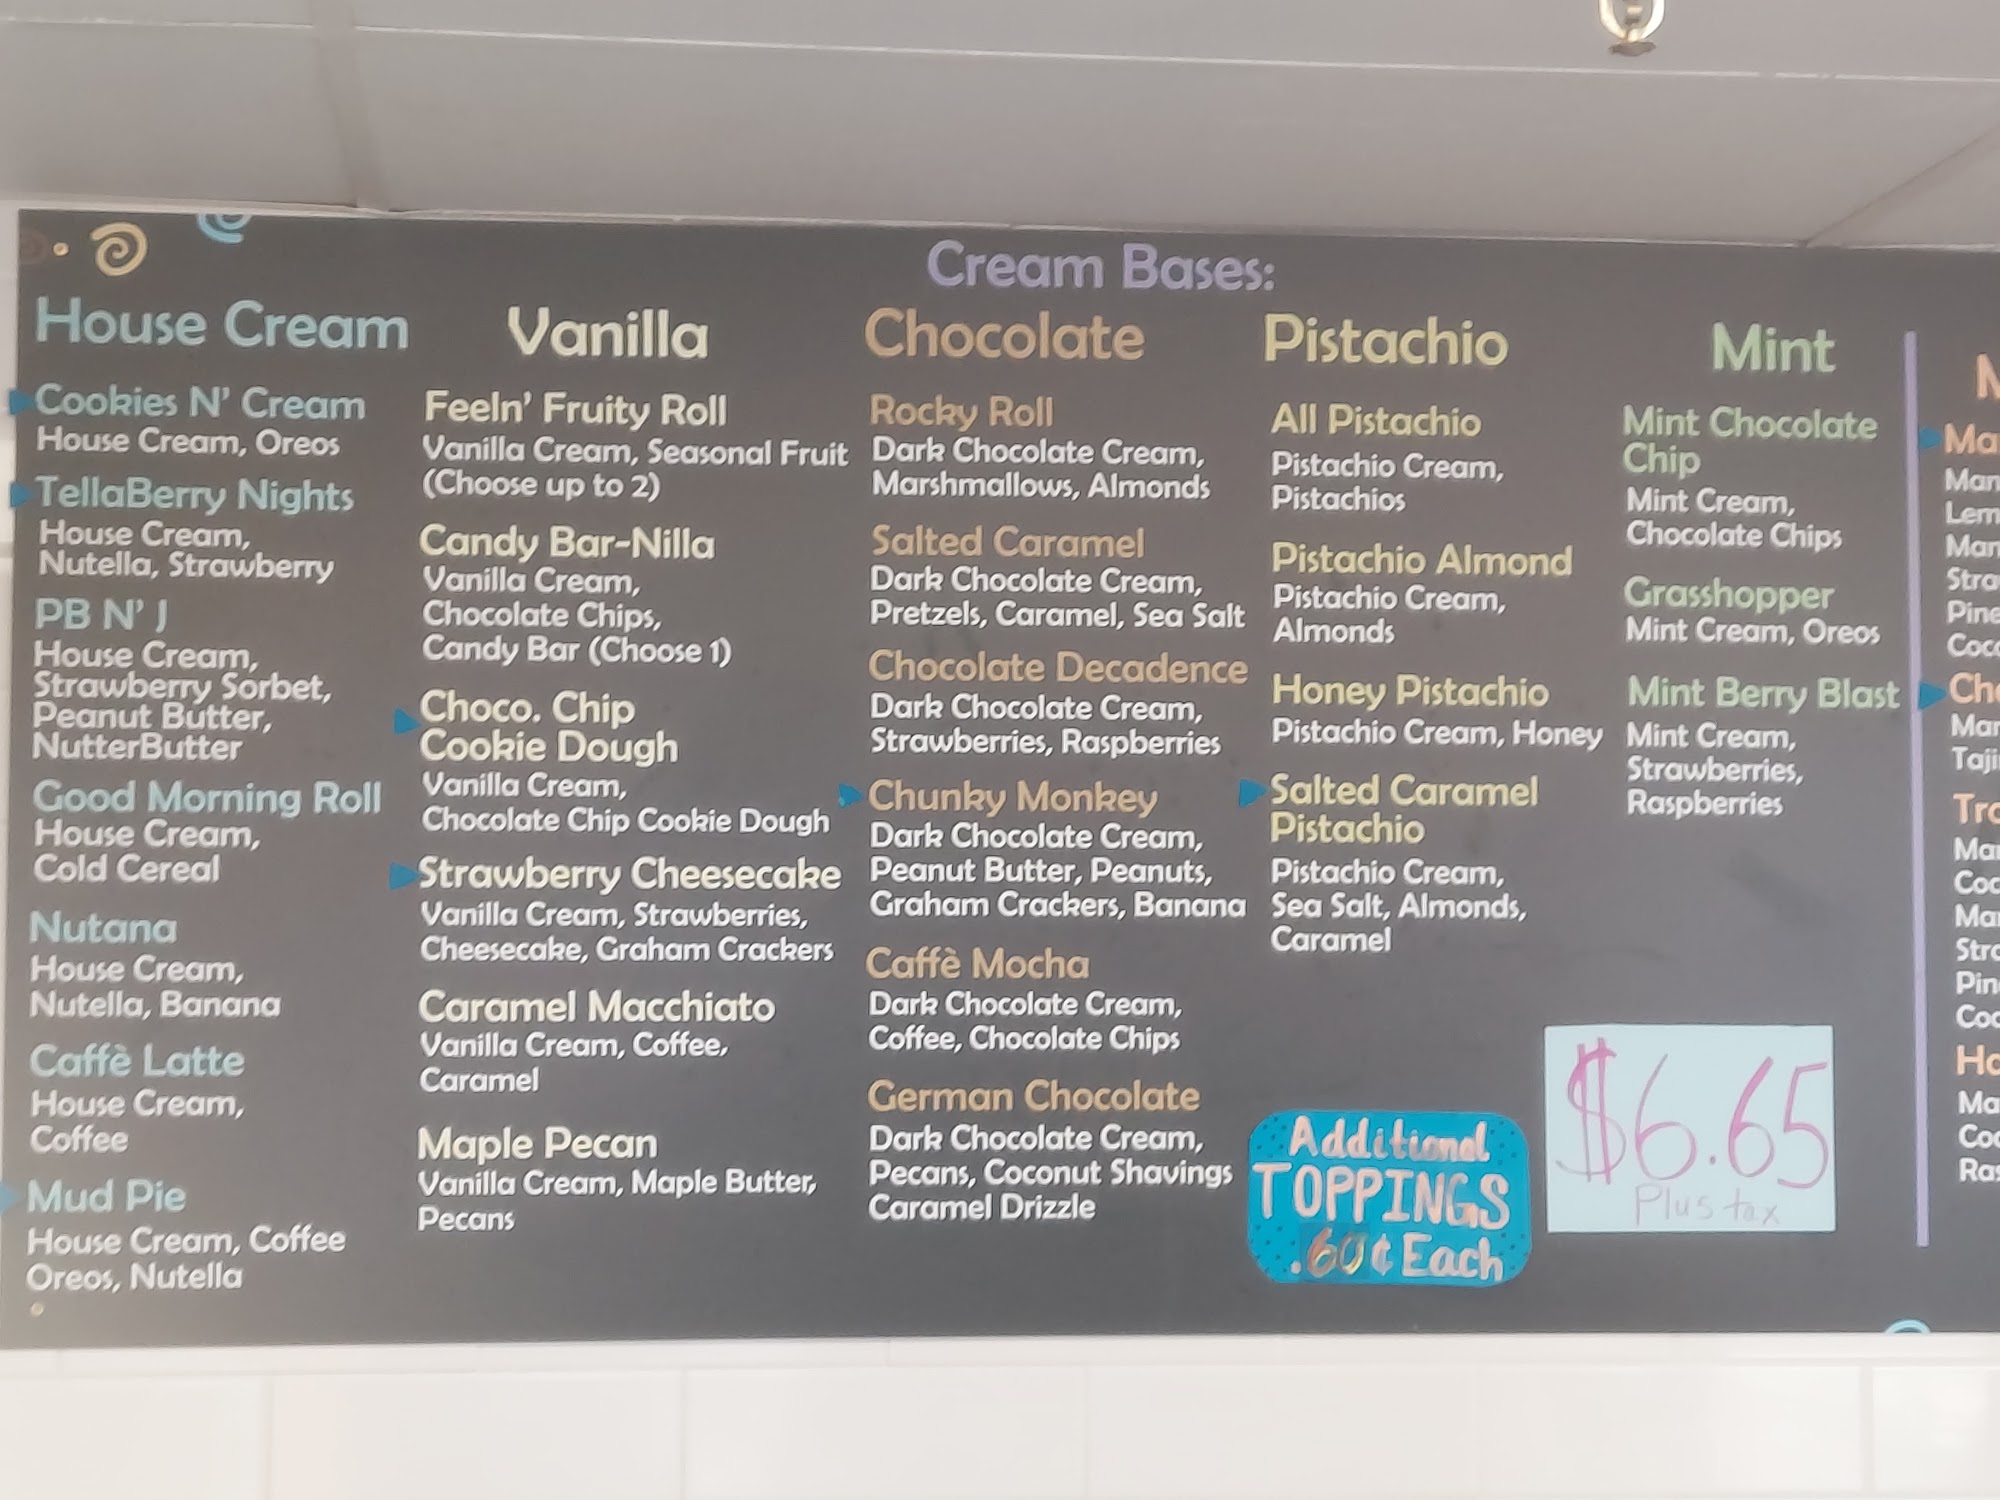 Cream Bases:
House Cream
Cookies N' Cream
House Cream, Oreos
TellaBerry Nights
House Cream,
Nutella, Strawberry
PB N' J
House Cream,
Strawberry Sorbet,
Peanut Butter,
NutterButter
Good Morning Roll
House Cream,
Cold Cereal
Nutana
House Cream,
Nutella, Banana
Caffè Latte
House Cream,
Coffee
Mud Pie
House Cream, Coffee
Oreos, Nutella
Vanilla
Feeln' Fruity Roll
Vanilla Cream, Seasonal Fruit
(Choose up to 2)
Candy Bar-Nilla
Vanilla Cream,
Chocolate Chips,
Candy Bar (Choose 1)
Choco. Chip
Cookie Dough
Vanilla Cream,
Chocolate Chip Cookie Dough
Strawberry Cheesecake
Vanilla Cream, Strawberries,
Cheesecake, Graham Crackers
Caramel Macchiato
Vanilla Cream, Coffee,
Caramel
Maple Pecan
Vanilla Cream, Maple Butter,
Pecans
Chocolate
Rocky Roll
Dark Chocolate Cream,
Marshmallows, Almonds
Salted Caramel
Dark Chocolate Cream,
Pretzels, Caramel, Sea Salt
Chocolate Decadence
Dark Chocolate Cream,
Strawberries, Raspberries
Chunky Monkey
Dark Chocolate Cream,
Peanut Butter, Peanuts,
Graham Crackers, Banana
Caffè Mocha
Dark Chocolate Cream,
Coffee, Chocolate Chips
German Chocolate
Dark Chocolate Cream,
Pecans, Coconut Shavings
Caramel Drizzle
Pistachio
All Pistachio
Pistachio Cream,
Pistachios
Pistachio Almond
Pistachio Cream,
Almonds
Honey Pistachio
Pistachio Cream, Honey
Salted Caramel
Pistachio
Pistachio Cream,
Sea Salt, Almonds,
Caramel
Additional
TOPPINGS
.60¢ Each
Mint
Mint Chocolate
Chip
Mint Cream,
Chocolate Chips
Grasshopper
Mint Cream, Oreos
Mint Berry Blast
Mint Cream,
Strawberries,
Raspberries
$6.65
Plus tax